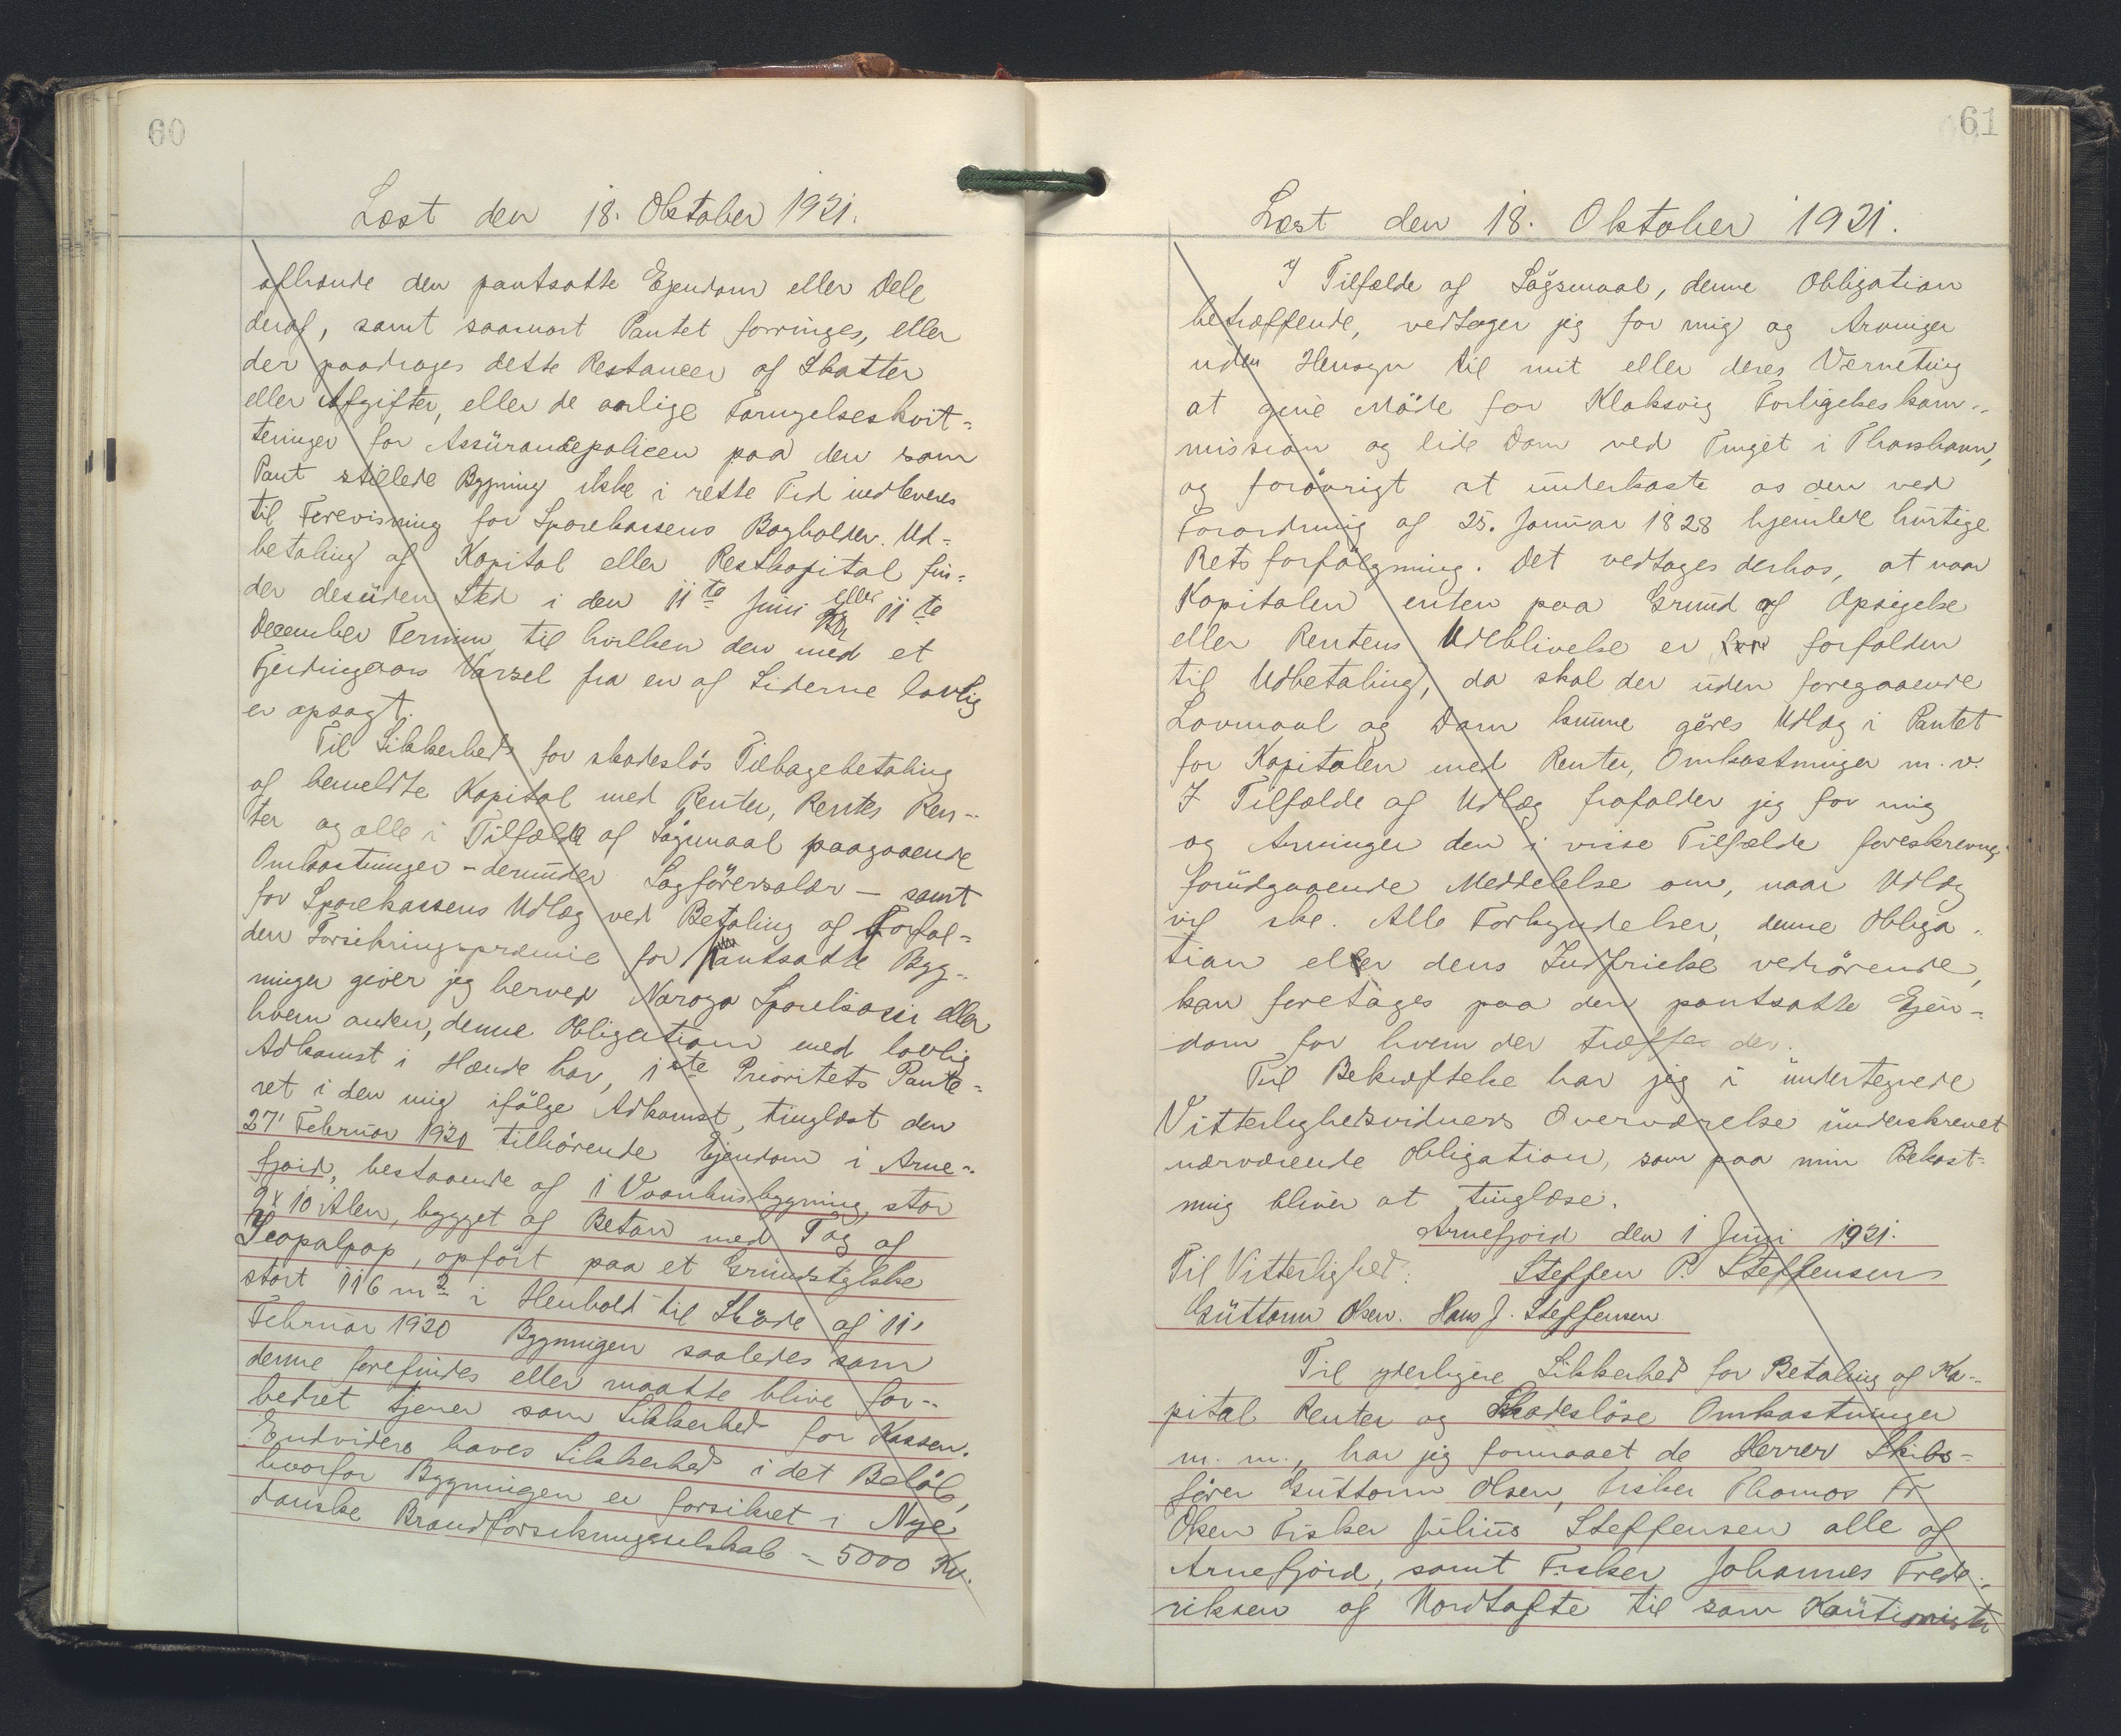 60
Læst den 18. Oktober 1921.
afhænde den pantsatte Ejendom eller Dele
deraf, samt saasnart Pantet forringes, eller
der paadrages dette Restancer af Skatter
eller Afgifter, eller de aarlige Fornyelseskvit-
teringer for Assüranсepolicen paa den som
Pant stillede Bygning ikke i rette Tid indleveres
til Forevisning for Sparekassens Bogholder. Ud-
betaling af Kapital eller Restkapital fin-
der desüden Sted i den 11te Juni eller 11te
December Termin til hvilken den med et
Fjerdingaars Varsel fra en af Siderne lovlig
er opsagt.
Til Sikkerhed for skadesløs Tilbagebetaling
af bemeldte Kapital med Renter, Rentes Ren-
ter og alle i Tilfælde af Søgsmaal paagaaende
Omkostninger - derunder Sagførersalær - samt
for Sparekassens Udlæg ved Betaling af Forfal-
den Forsikringspræmie for pantsatte Byg-
ninger giver jeg herved Norøya Sparikassi eller
hvem anden, denne Obligation med lovlig
Adkomst i Hænde har, 1ste Prioritets Pante-
ret i den mig ifölge Adkomst, tinglæst den
27' Februar 1920 tilhörende Ejendom i Arne-
fjord, bestaaende af 1 Vaanhusbygning, stor
9 x 10 Alen, bygget af Beton med Tag af
Icopalpap, opfört paa et Grundstykke
stort 116 m2 i Henhold til Sköde af 11'
Februar 1920 Bygningen saaledes som
denne forefindes eller maatte blive for-
bedret tjener som Sikkerhed for Kassen.
Endvidere haves Sikkerhed i det Belöb,
hvorfor Bygningen er forsikret i Nye
danske Brandforsikringsselskab = 5000 Kr.
61
Læst den 18. Oktober 1921.
I Tilfælde af Sögsmaal, denne Obligation
betræffende, vedtager jeg for mig og Arvinger
uden Hensyn til mit eller deres Værneting
at give Möde for Klaksvig Forligelseskom-
mission og lide Dom ved Tinget i Thorshavn,
og forövrigt at ünderkaste os den ved
Forordning af 25. Januar 1828 hjemlede hürtige
Retsforfölgning. Det vedtages derhos, at naar
Kapitalen enten paa Grund af Opsigelse
eller Rentens Udeblivelse er forfalden
til Udbetaling, da skal der üden foregaaende
Lovmaal og Dom kunne göres Udlæg i Pantet
for Kapitalen med Renter, Omkostninger m. v.
I Tilfælde af Udlæg frafalder jeg for mig
og Arvinger den i visse Tilfælde foreskrevne
forüdgaaende Meddelelse om, naar Udlæg
vil ske. Alle Forkyndelser, denne Obliga-
tion eller dens Indfrielse vedrörende,
kan foretages paa den pantsatte Ejen-
dom for hvem der træffes der.
Til Bekræftelse har jeg i ündertegnede
Vitterlighedsvidners Overværelse ünderskrevet
nærværende Obligation, som paa min Bekost-
ning bliver at tinglæse.
Arnefjord den 1 Juni 1921.
Til Vitterlighed: Steffen P. Steffensen
Guttorm Olsen. Hans J. Steffensen
Til yderligere Sikkerhed for Betaling af Ka-
pital Renter og Skadeslöse Omkostninger
m. m., har jeg formaaet de Herrer Skibs-
förer Guttorm Olsen, Fisker Thomas Fr
Olsen Fisker Julius Steffensen alle af
Arnefjord, samt Fisker Johannes Frede-
riksen af Nordtofte til som Kautionister